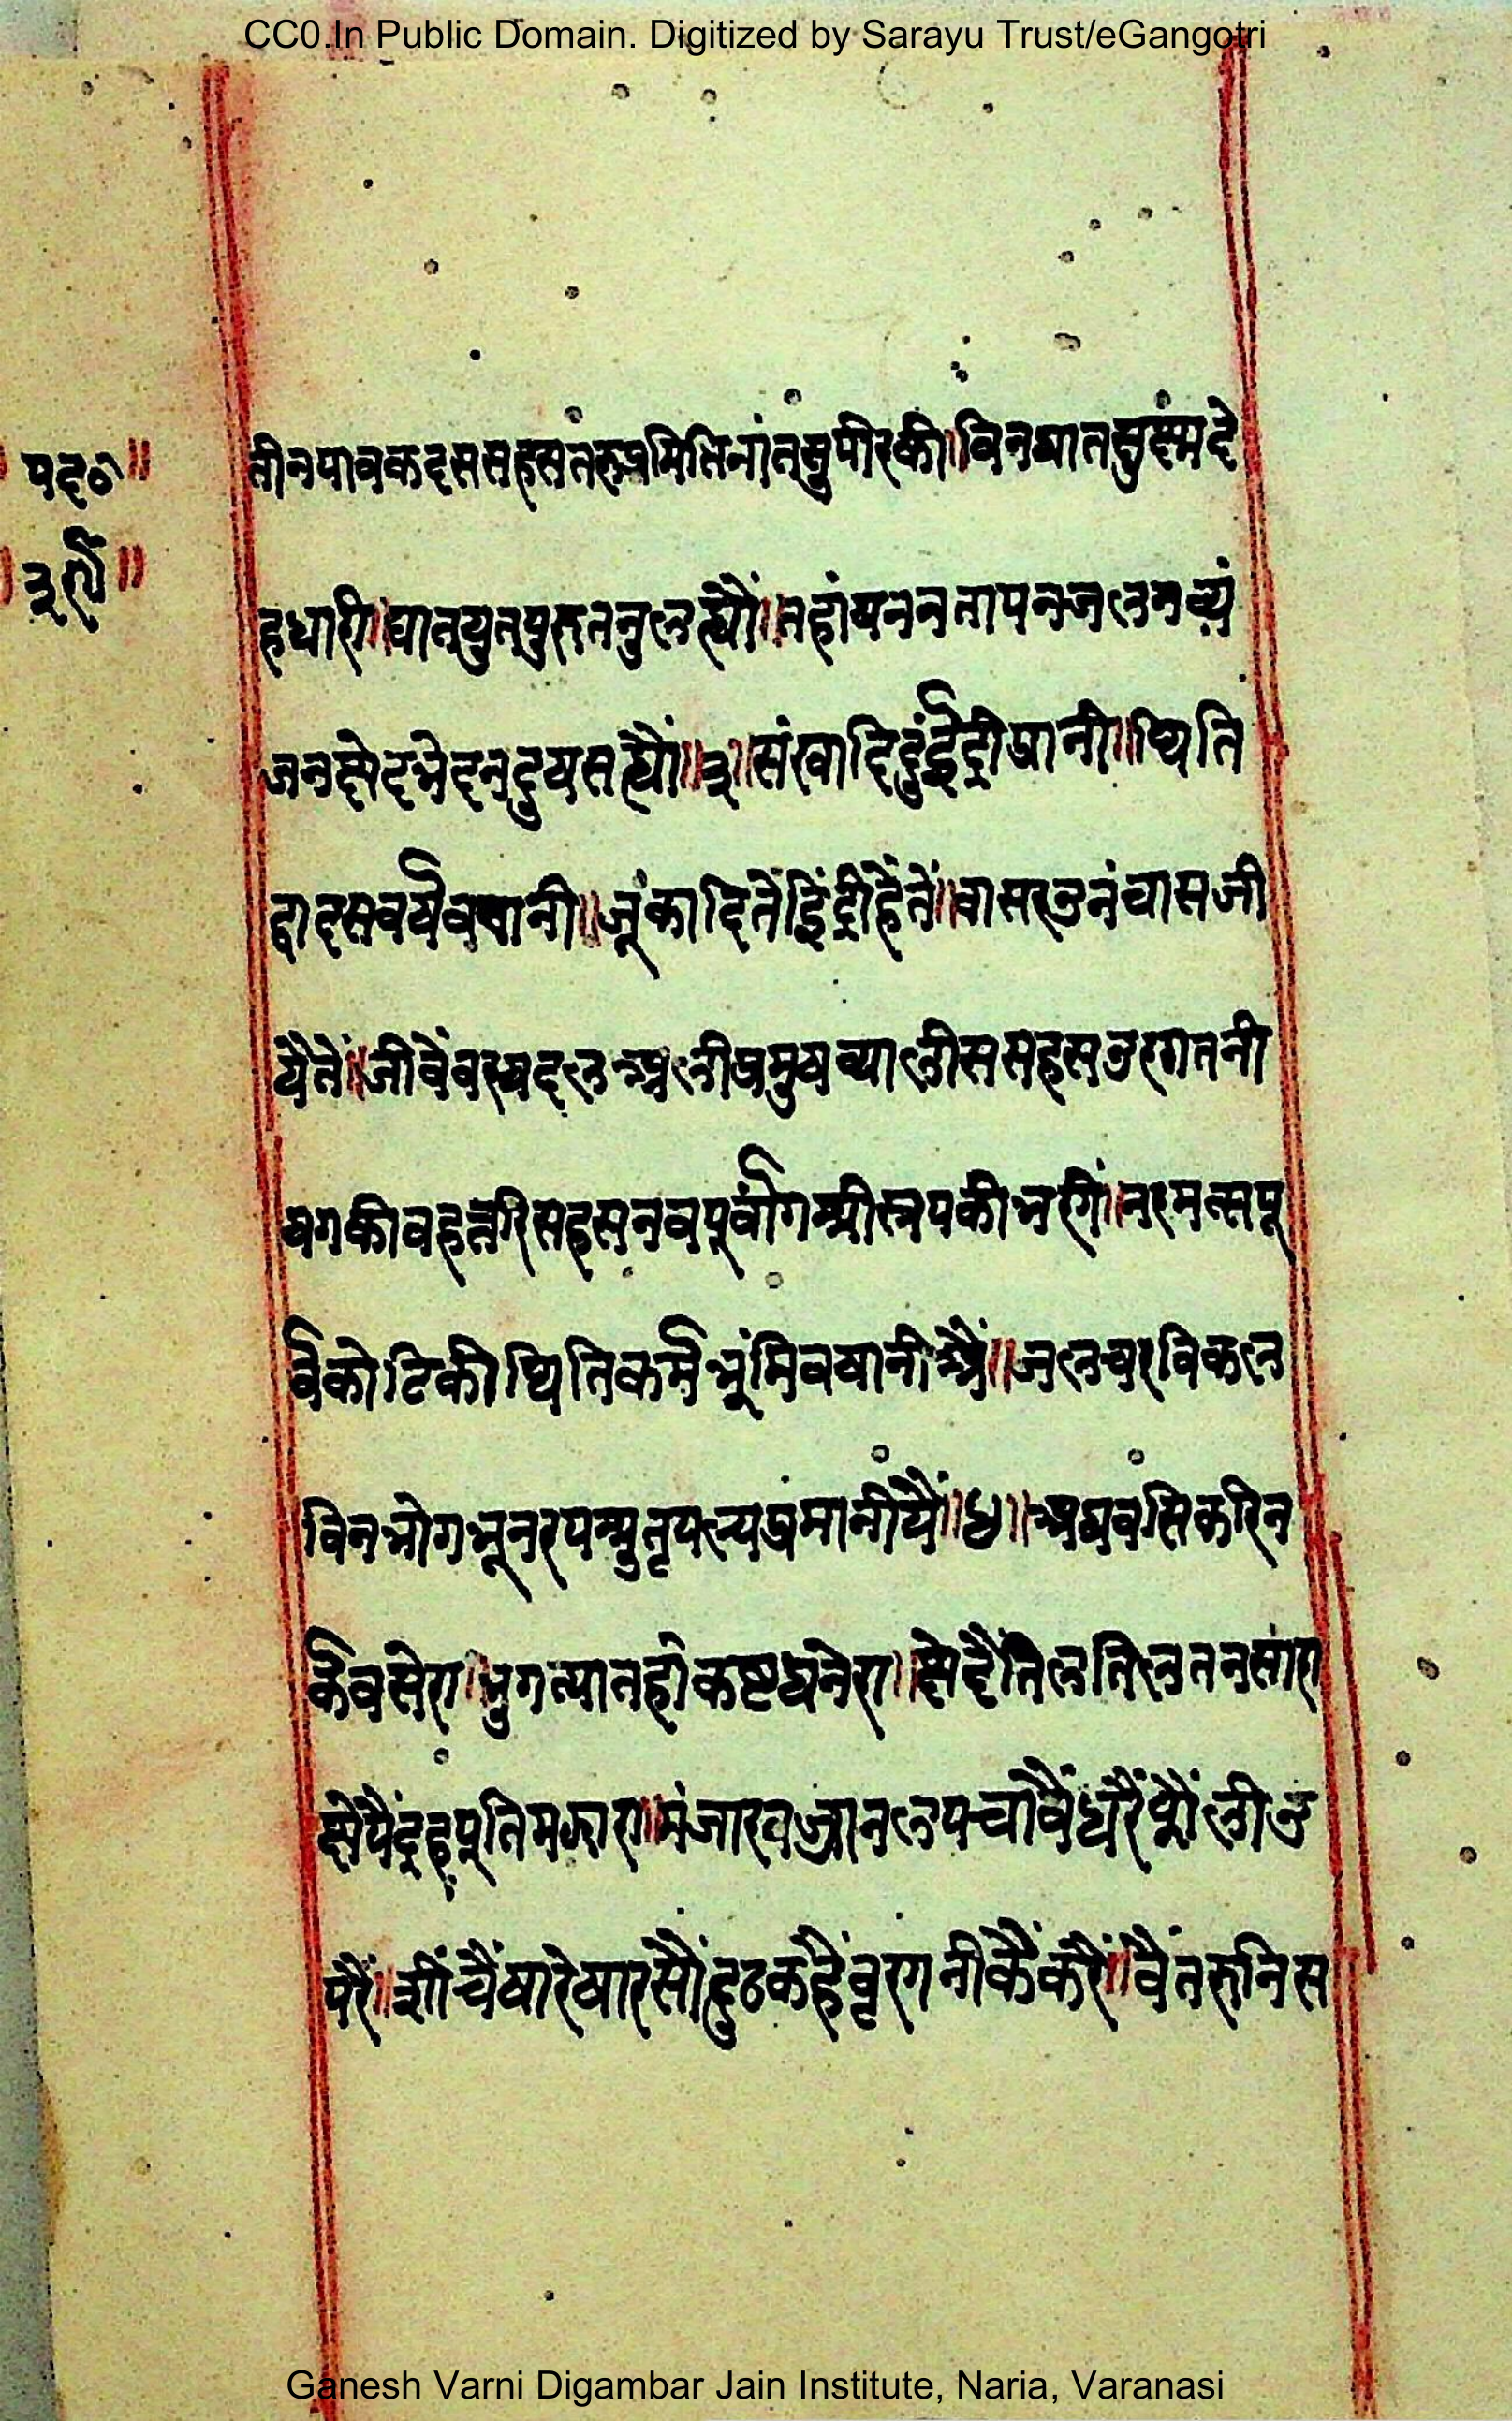 CC0.In Public Domain. Digitized by Sarayu Trust/eGangotri
पद॰॥
तीनपावकदससहसतरुप्रमितिनांतसुपीरकी॥विनघातसुछमदे
हधारी॥घातयुतपुरुतनलह्यौं॥तहांषननतापनजलनव्यं
जनछेदभेदनदुषसह्यौं॥३॥संखादिदुइंद्रीप्रानी॥थिति
द्वादसवर्षवषानी॥जूंकादितेइंद्रीहैंतें॥वासरउनंचासजी
यैतें॥जीवैंछमासदलअलीप्रमुषव्यालीससहसउरगतनी
षगकीवहत्तरिसहसनवपूर्वांगसरीसृपकीभरगीं॥नरमत्सपू
र्वकोटिकीथितिकर्मभूंमिवषानीयैं॥जलचरविकल
विनभोगभूनरपसुतृपल्यप्रमानीयैं॥४॥अघवसिकरिन
र्कवसेरा॥भुगत्यातहांकष्टघनेरा॥छेदैंतिलतिलतनसारा
छेपैंद्रहपूतिमझारा॥मंजारवज्रानलपचावैंधरैंसूलीउ
परैं॥सींचैंषारेषारसौंदुठकहैंवृरगनीकैंकरैं॥वैतरुनिस
Ganesh Varni Digambar Jain Institute, Naria, Varanasi